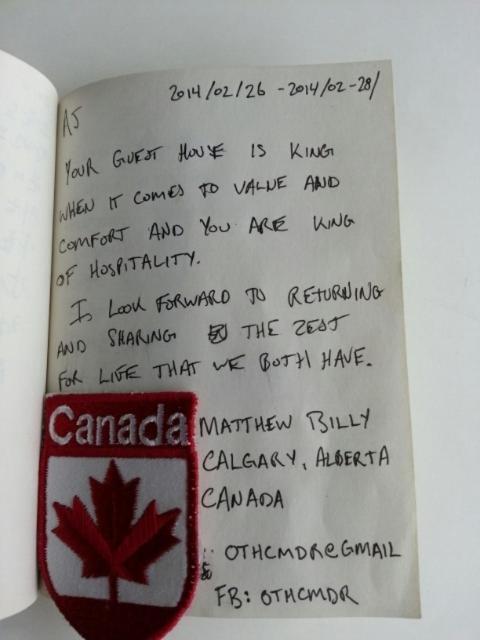 2014/02/26 - 2014/02-28/
AJ
YOUR GUEST HOUSE IS KING
WHEN IT COMES TO VALUE AND
COMFORT AND YOU ARE KING
OF HOSPITALITY.
I LOOK FORWARD TO RETURNING
AND SHARING THE ZEST
FOR LIFE THAT WE BOTH HAVE.
Canada
MATTHEW BILLY
CALGARY, ALBERTA
CANADA
OTHCMDR@GMAIL
FB: OTHCMDR